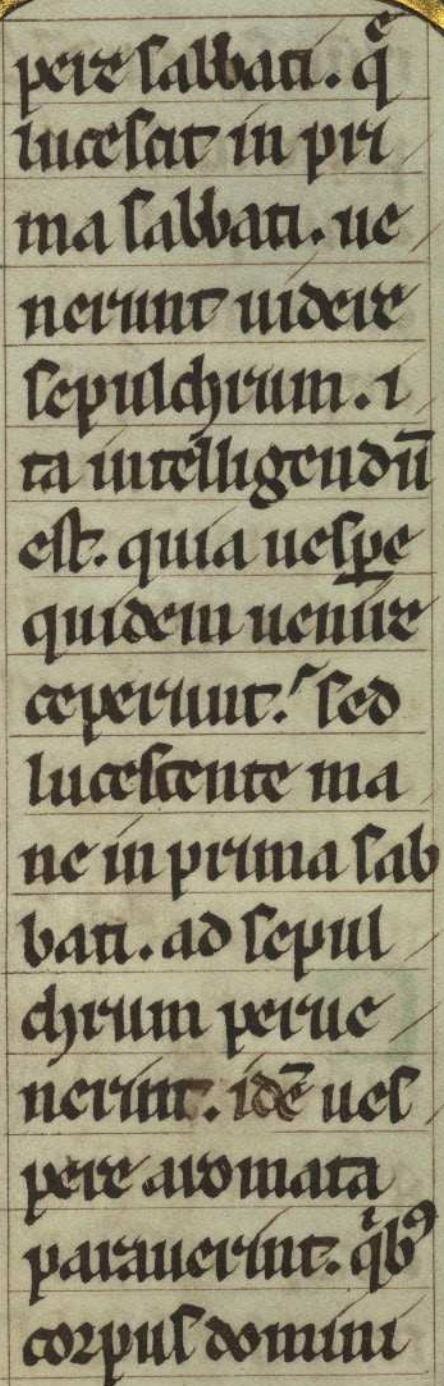 pere sabbati. q̄
lucescit in pri
ma sabbati. ue
nerunt uidere
sepulchrum. i
ta intelligendū
est. quia uesꝑe
quidem uenire
ceperunt. sed
lucescente ma
ne in prima sab
bati. ad sepul
chrum perue
nerint. idē ues
pere aromata
parauerint. qͥbꝰ
corpus domini